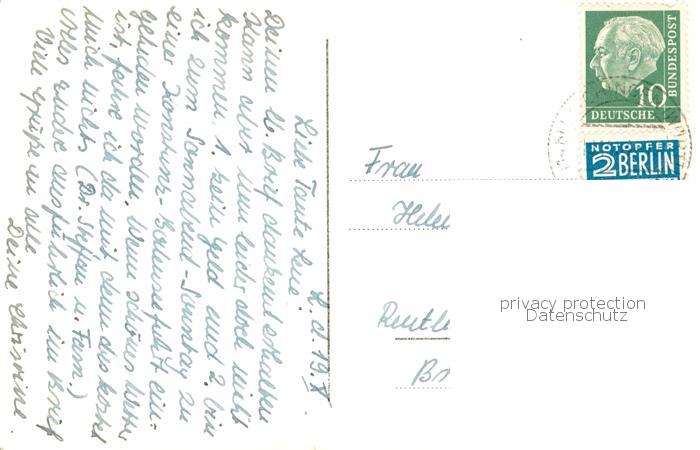 L. d. 19. V.
Liebe Tante Lena!
Deinen lb Brief dankend erhalten
Kann aber nun leider doch nicht
kommen, 1. kein Geld und 2. bin
ich zum Sonnabend-Sonntag zu
einer Konstanz-Bodenseefahrt ein-
geladen worden. Wenn schönes Wetter
ist, fahre ich da mit denn das kostet
mich nichts (Dr. Steffan u. Fam.)
Alles andere ausführlich im Brief
Viele Grüße an alle
Deine Christine.
Frau
Helen
Reutl
Br
10
DEUTSCHE
BUNDESPOST
NOTOPFER
2 BERLIN
privacy protection
Datenschutz